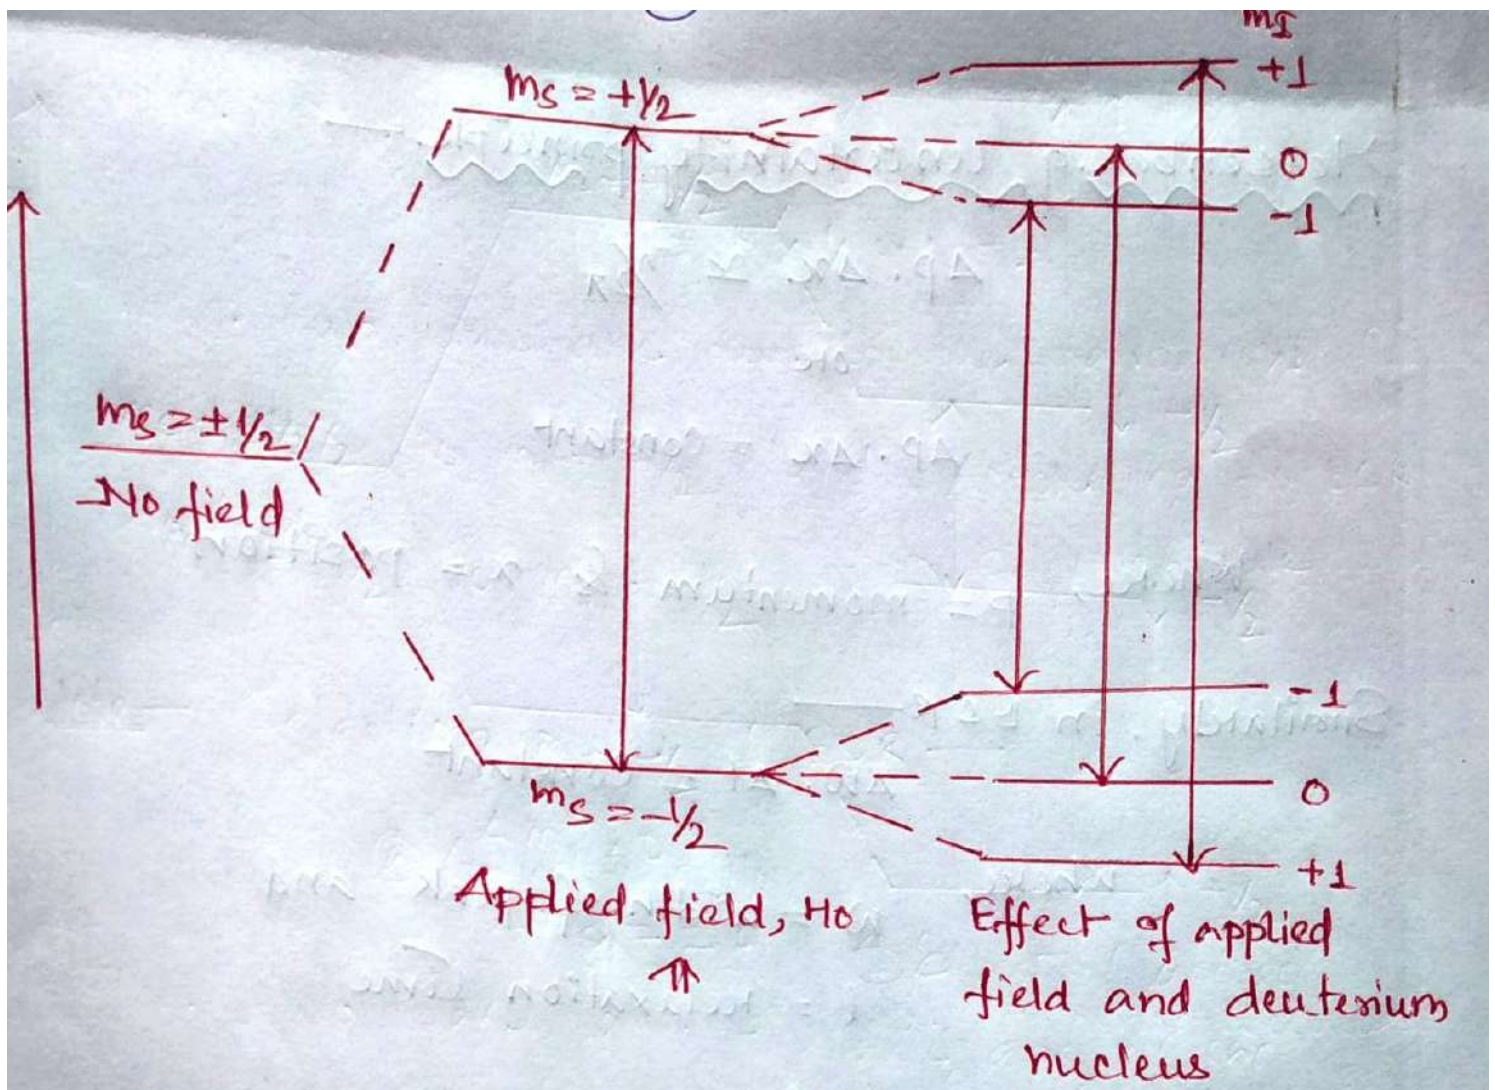 mI
ms = +1/2
+1
0
-1
ms = ±1/2
No field
-1
0
+1
ms = -1/2
Applied field, Ho
⇑
Effect of applied
field and deuterium
nucleus